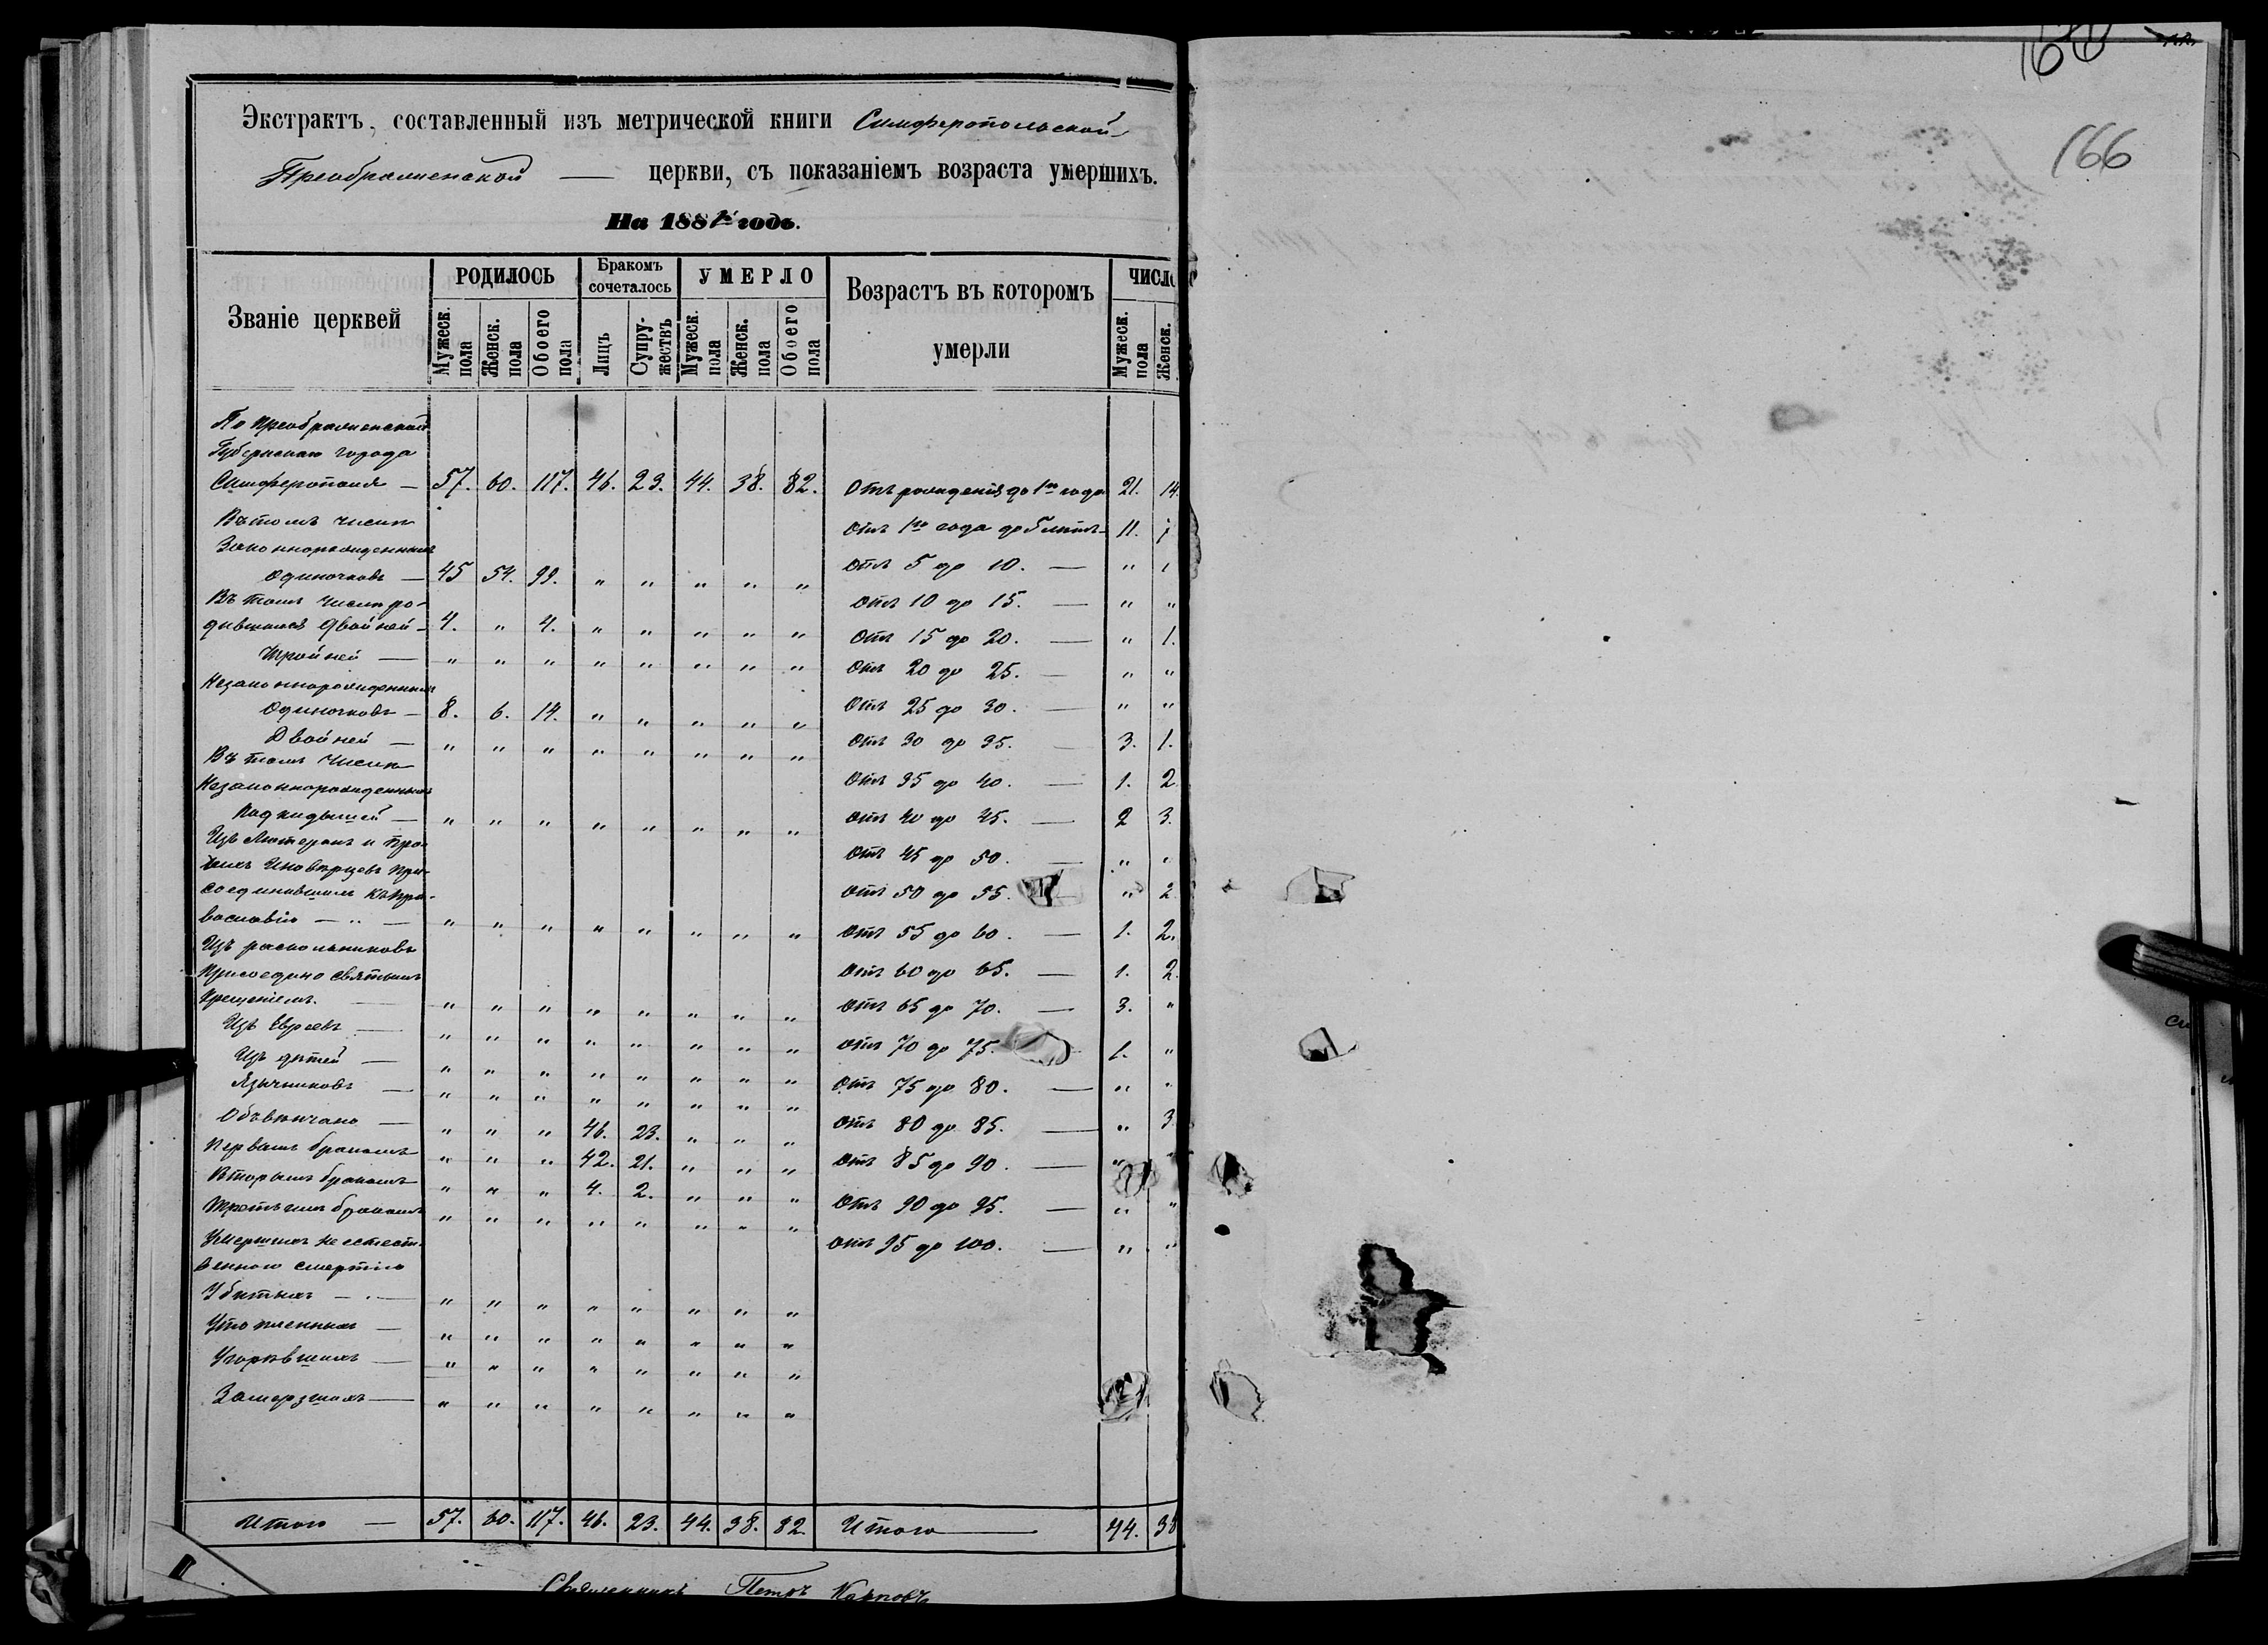 Экстрактъ, составленный изъ метрической книги Симферопольской
Преображенской — церкви, съ показаніемъ возраста умершихъ.
На 188 годъ.
Званіе церквей | РОДИЛОСЬ | Бракомъ сочеталось | УМЕРЛО | Возрастъ въ которомъ умерли | ЧИСЛО
Мужеск. пола | Женск. пола | Обоего пола | Лицъ | Супружествъ | Мужеск. пола | Женск. пола | Обоего пола | Мужеск. пола | Женск.
По Преображенской
Губернскаго города
Симферополя — 57. 60. 117. 46. 23. 44. 38. 82. Отъ рожденія до 1го года 21. 14.
Въ томъ числѣ
Отъ 1го года до 5 лѣтъ — 11. 7
Законнорожденныхъ
Одиночковъ — 45 54. 99. „ „ „ „ „
Отъ 5 до 10. — „ 1
Въ томъ числѣ ро-
Отъ 10 до 15. — „ „
дившихся двойней — 4. „ 4. „ „ „ „ „
Отъ 15 до 20. — „ 1.
Тройней — „ „ „ „ „ „ „ „
Отъ 20 до 25. — „ „
Незаконнорожденныхъ
Одиночковъ — 8. 6. 14. „ „ „ „ „
Отъ 25 до 30. — „ „
Двойней — „ „ „ „ „ „ „ „
Отъ 30 до 35. — 3. 1.
Въ томъ числѣ
Незаконнорожденныхъ
Отъ 35 до 40. — 1. 2.
Подкидышей — „ „ „ „ „ „ „ „
Отъ 40 до 45. — 2 3.
Изъ Лютеранъ и про-
чихъ Иновѣрцевъ при-
Отъ 45 до 50. — „ „
соединившихъ къ пра-
Отъ 50 до 55. — „ 2
вославію — „ — „ „ „ „ „ „ „ „
Отъ 55 до 60. — 1. 2.
Изъ раскольниковъ
Присоедино святымъ
Отъ 60 до 65. — 1. 2.
Крещеніемъ. — „ „ „ „ „ „ „ „
Отъ 65 до 70. — 3. „
Изъ Евреевъ — „ „ „ „ „ „ „ „
Отъ 70 до 75. 1. „
Изъ дѣтей —
Язычниковъ — „ „ „ „ „ „ „ „
Отъ 75 до 80. — „ „
Обвѣнчано — „ „ „ 46. 23. „ „ „
Отъ 80 до 85. — „ 3
Первымъ бракомъ „ „ „ 42. 21. „ „ „
Отъ 85 до 90. — „
Вторымъ бракомъ „ „ „ 4. 2. „ „ „
Отъ 90 до 95. — „ „
Третьимъ бракомъ „ „ „ „ „ „ „ „
Умершихъ не естест-
Отъ 95 до 100. — „ „
венною смертію
Убитыхъ — „ „ „ „ „ „ „ „
Утопленныхъ — „ „ „ „ „ „ „ „
Угорѣвшихъ — „ „ „ „ „ „ „ „
Замерзшихъ — „ „ „ „ „ „ „ „
Итого — 57. 60. 117. 46. 23. 44. 38. 82. Итого — 44. 38
Священникъ Петръ Карповъ
166